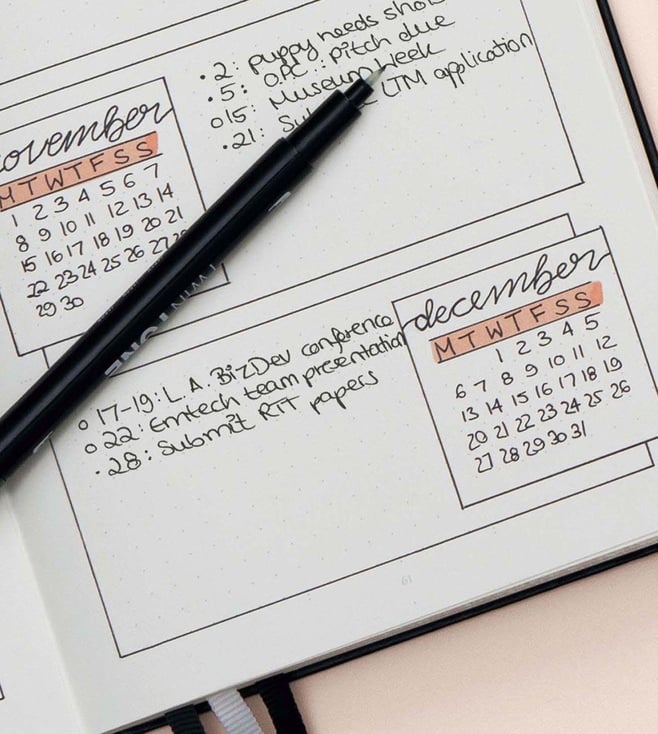 • 2: puppy needs
• 5: OPC: Pitch due
o 15: Museum Week
• 21: LTM application
november
M T W T F S S
1 2 3 4 5 6 7
8 9 10 11 12 13 14
15 16 17 18 19 20 21
22 23 24 25 26 27 28
29 30
december
M T W T F S S
1 2 3 4 5
6 7 8 9 10 11 12
13 14 15 16 17 18 19
20 21 22 23 24 25 26
27 28 29 30 31
o 17-19: L.A. BizDev conference
o 22: Emtech team presentation
• 28: Submit RTT papers
TWIN TONE
61